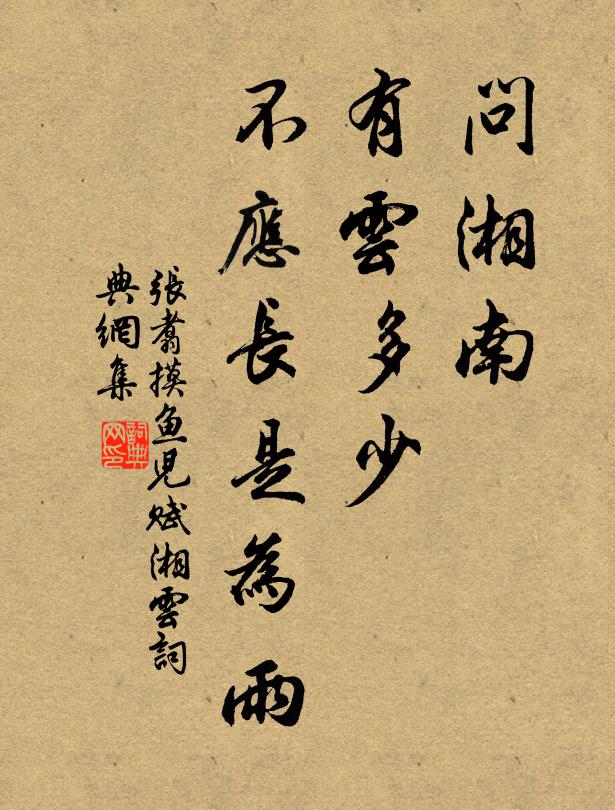 問湘南
有雲多少
不應長是為雨
張翥摸魚兒賦湘雲詞
典網集
詞典
网印